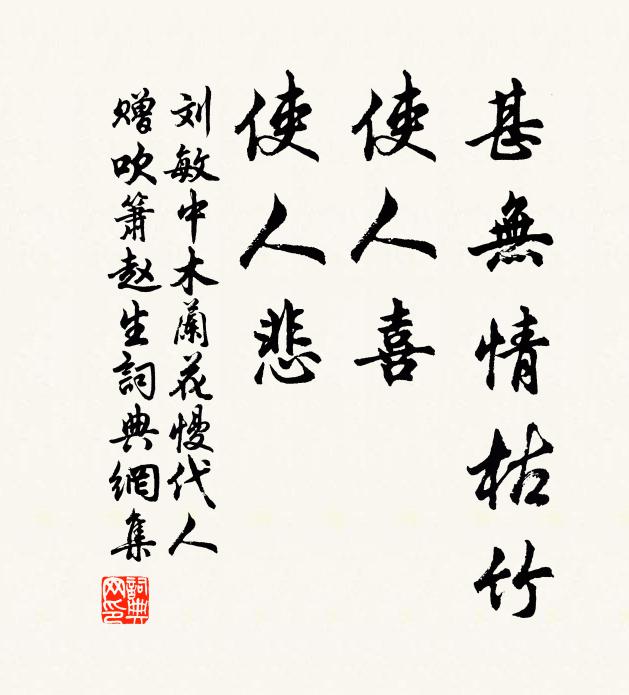 甚無情枯竹
使人喜
使人悲
刘敏中木蘭花慢代人
赠吹簫赵生詞典網集
詞典
网印